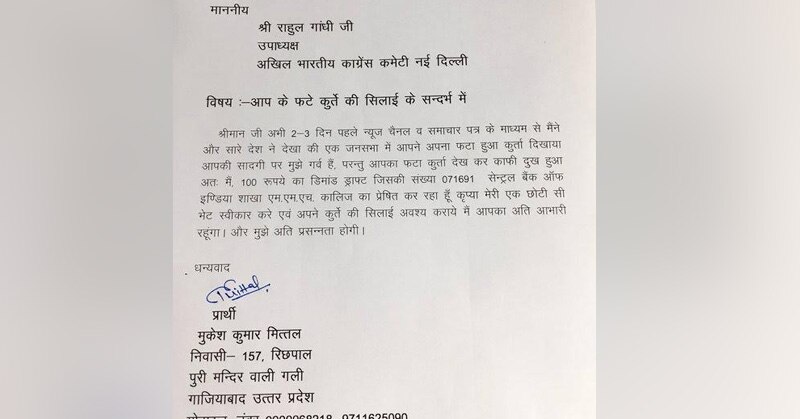 माननीय
श्री राहुल गांधी जी
उपाध्यक्ष
अखिल भारतीय काग्रेंस कमेटी नई दिल्ली
विषय :–आप के फटे कुर्ते की सिलाई के सन्दर्भ में
श्रीमान जी अभी 2–3 दिन पहले न्यूज चैनल व समाचार पत्र के माध्यम से मैंने
और सारे देश ने देखा की एक जनसभा में आपने अपना फटा हुआ कुर्ता दिखाया
आपकी सादगी पर मुझे गर्व हैं, परन्तु आपका फटा कुर्ता देख कर काफी दुख हुआ
अतः मैं, 100 रूपये का डिमांड ड्राफ्ट जिसकी संख्या 071691 सेन्ट्रल बैंक ऑफ
इण्डिया शाखा एम.एम.एच. कालिज का प्रेषित कर रहा हूँ कृप्या मेरी एक छोटी सी
भेट स्वीकार करे एवं अपने कुर्ते की सिलाई अवश्य कराये मैं आपका अति आभारी
रहूंगा। और मुझे अति प्रसन्नता होगी।
धन्यवाद
प्रार्थी
मुकेश कुमार मित्तल
निवासी– 157, रिछपाल
पुरी मन्दिर वाली गली
गाजियाबाद उत्तर प्रदेश